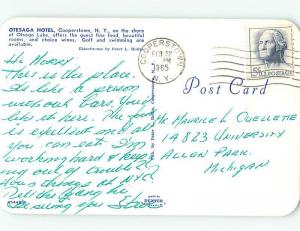 OTESAGA HOTEL, COOPERSTOWN, N. Y., on the shore
of Otsego Lake, offers the guest fine food, beautiful
rooms, and choice wines. Golf and swimming are
available.
Ektachrome by Peter L.
Hi Morry
This is the place.
Its like a prison
without bars. You'd
like it here. The food
is excellent and all
you can eat. I'm
working hard & keep
ing out of trouble?
Hows things at NYC?
Tell the gang hi
Be seeing you Steve
COOPERSTOWN
FEB 12
PM
1965
N.Y.
5¢
U.S. POSTAGE
Post Card
Mr Maurice L Ouellette
14823 University
Allen Park.
Michigan
DEXTER